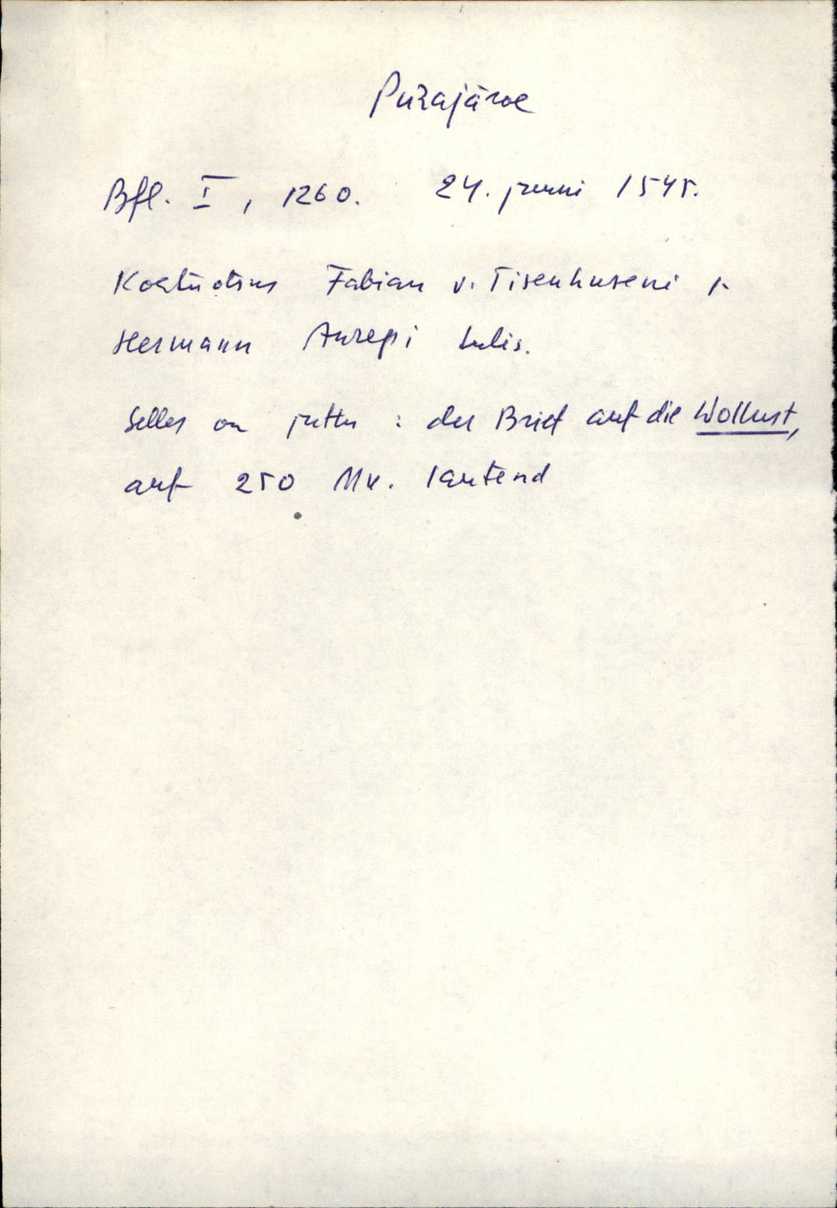 Pühajärve
Bfl. I, 1260. 24. juuni 1545.
Kohtuotsus Fabian v. Tisenhuseni ja
Hermann Anrepi tülis.
Selles on juttu: der Brief auf die Wollust,
auf 250 Mk. lautend